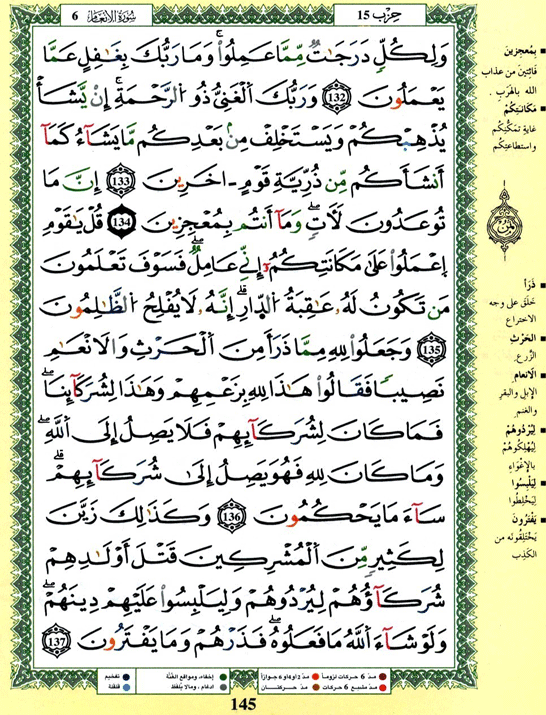 سُورَةُ الأَنْعَام 6
حِزْب 15
وَلِكُلٍّ دَرَجَٰتٌ مِّمَّا عَمِلُواْ وَمَا رَبُّكَ بِغَٰفِلٍ عَمَّا
يَعْمَلُونَ 132 وَرَبُّكَ اَلْغَنِيُّ ذُو اُلرَّحْمَةِ إِنْ يَّشَأْ
يُذْهِبْكُمْ وَيَسْتَخْلِفْ مِنۢ بَعْدِكُم مَّا يَشَآءُ كَمَآ
أَنشَأَكُم مِّن ذُرِّيَّةِ قَوْمٍ اٰخَرِينَ 133 إِنَّ مَا
تُوعَدُونَ لَأٓتٍ وَمَآ أَنتُم بِمُعْجِزِينَ 134 قُلْ يَٰقَوْمِ
اِعْمَلُواْ عَلَىٰ مَكَانَتِكُمُۥٓ إِنِّي عَامِلٌ فَسَوْفَ تَعْلَمُونَ
مَن تَكُونُ لَهُۥ عَٰقِبَةُ الدِّارِ إِنَّهُۥ لَا يُفْلِحُ اُلظَّٰلِمُونَ
135 وَجَعَلُواْ لِلهِ مِمَّا ذَرَأَ مِنَ اَلْحَرْثِ وَالَانْعَٰمِ
نَصِيباً فَقَالُواْ هَٰذَا لِلهِ بِزَعْمِهِمْ وَهَٰذَا لِشُرَكَآئِنَا
فَمَا كَانَ لِشُرَكَآئِهِمْ فَلَا يَصِلُ إِلَى اَللَّهِ
وَمَا كَانَ لِلهِ فَهُوَ يَصِلُ إِلَىٰ شُرَكَآئِهِمْ
سَآءَ مَا يَحْكُمُونَ 136 وَكَذَٰلِكَ زَيَّنَ
لِكَثِيرٍ مِّنَ اَلْمُشْرِكِينَ قَتْلَ أَوْلَٰدِهِمْ
شُرَكَآؤُهُمْ لِيُرْدُوهُمْ وَلِيَلْبِسُواْ عَلَيْهِمْ دِينَهُمْ
وَلَوْ شَآءَ اَللَّهُ مَا فَعَلُوهُ فَذَرْهُمْ وَمَا يَفْتَرُونَ 137
بِمُعْجِزِينَ
فَائِتِينَ من عذاب
الله بالهَرَبِ .
مَكَانَتِكُمْ
غاية تَمَكُّنِكُم
واستطاعتِكُم
ثمن
ذَرَأَ
خَلَقَ على وجه
الاختراع
الحَرْثِ
الزَّرع
الانعام
الإبل والبقر
والغنم
لِيُرْدُوهُمْ
لِيُهْلِكُوهُمْ
بالإغْوَاء
لِيَلْبِسُوا
لِيَخْلِطُوا
يَفْتَرُونَ
يَخْتَلِقُونَه من
الكَذِب
مدّ 6 حركات لزوماً
مدّ 2 أو 4 أو 6 جوازاً
إخفاء، ومواقع الغُنَّة
تفخيم
مدّ مشبع 6 حركات
مدّ حركتـــان
إدغام ، وما لا يُلفَظ
قلقلة
145